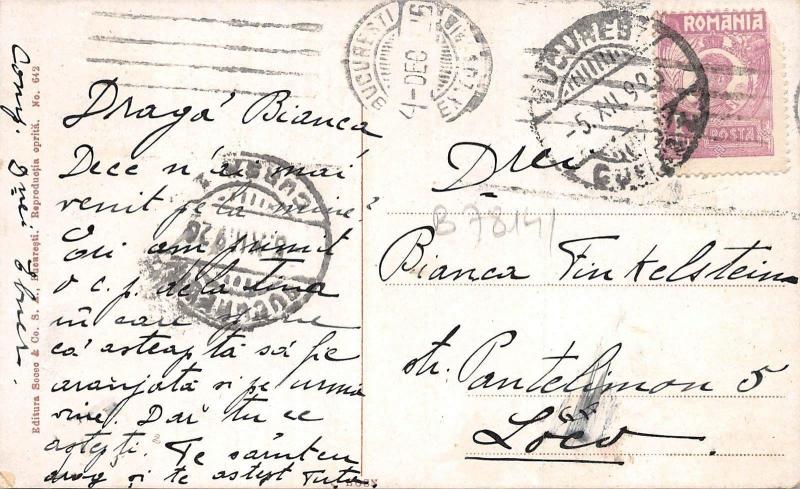 Dragă Bianca
Dece n'ai mai
venit pe la mine?
Eri am primit
o c.p. dela tina
în care spune
că așteaptă să fie
aranjată și pe urmă
vine. Dar tu ce
aștepți. Te sărut cu
drag și te aștept Tuta.
Editura Socec & Co. S. A., București. Reproducția oprită. No. 642
BUCUREȘTI
4-DEC
BUCUREȘTI
-5.XII.92
ROMANIA
POSTA
B 78141
D-rei
Bianca Finkelstein
str. Pantelimon 5
Loco